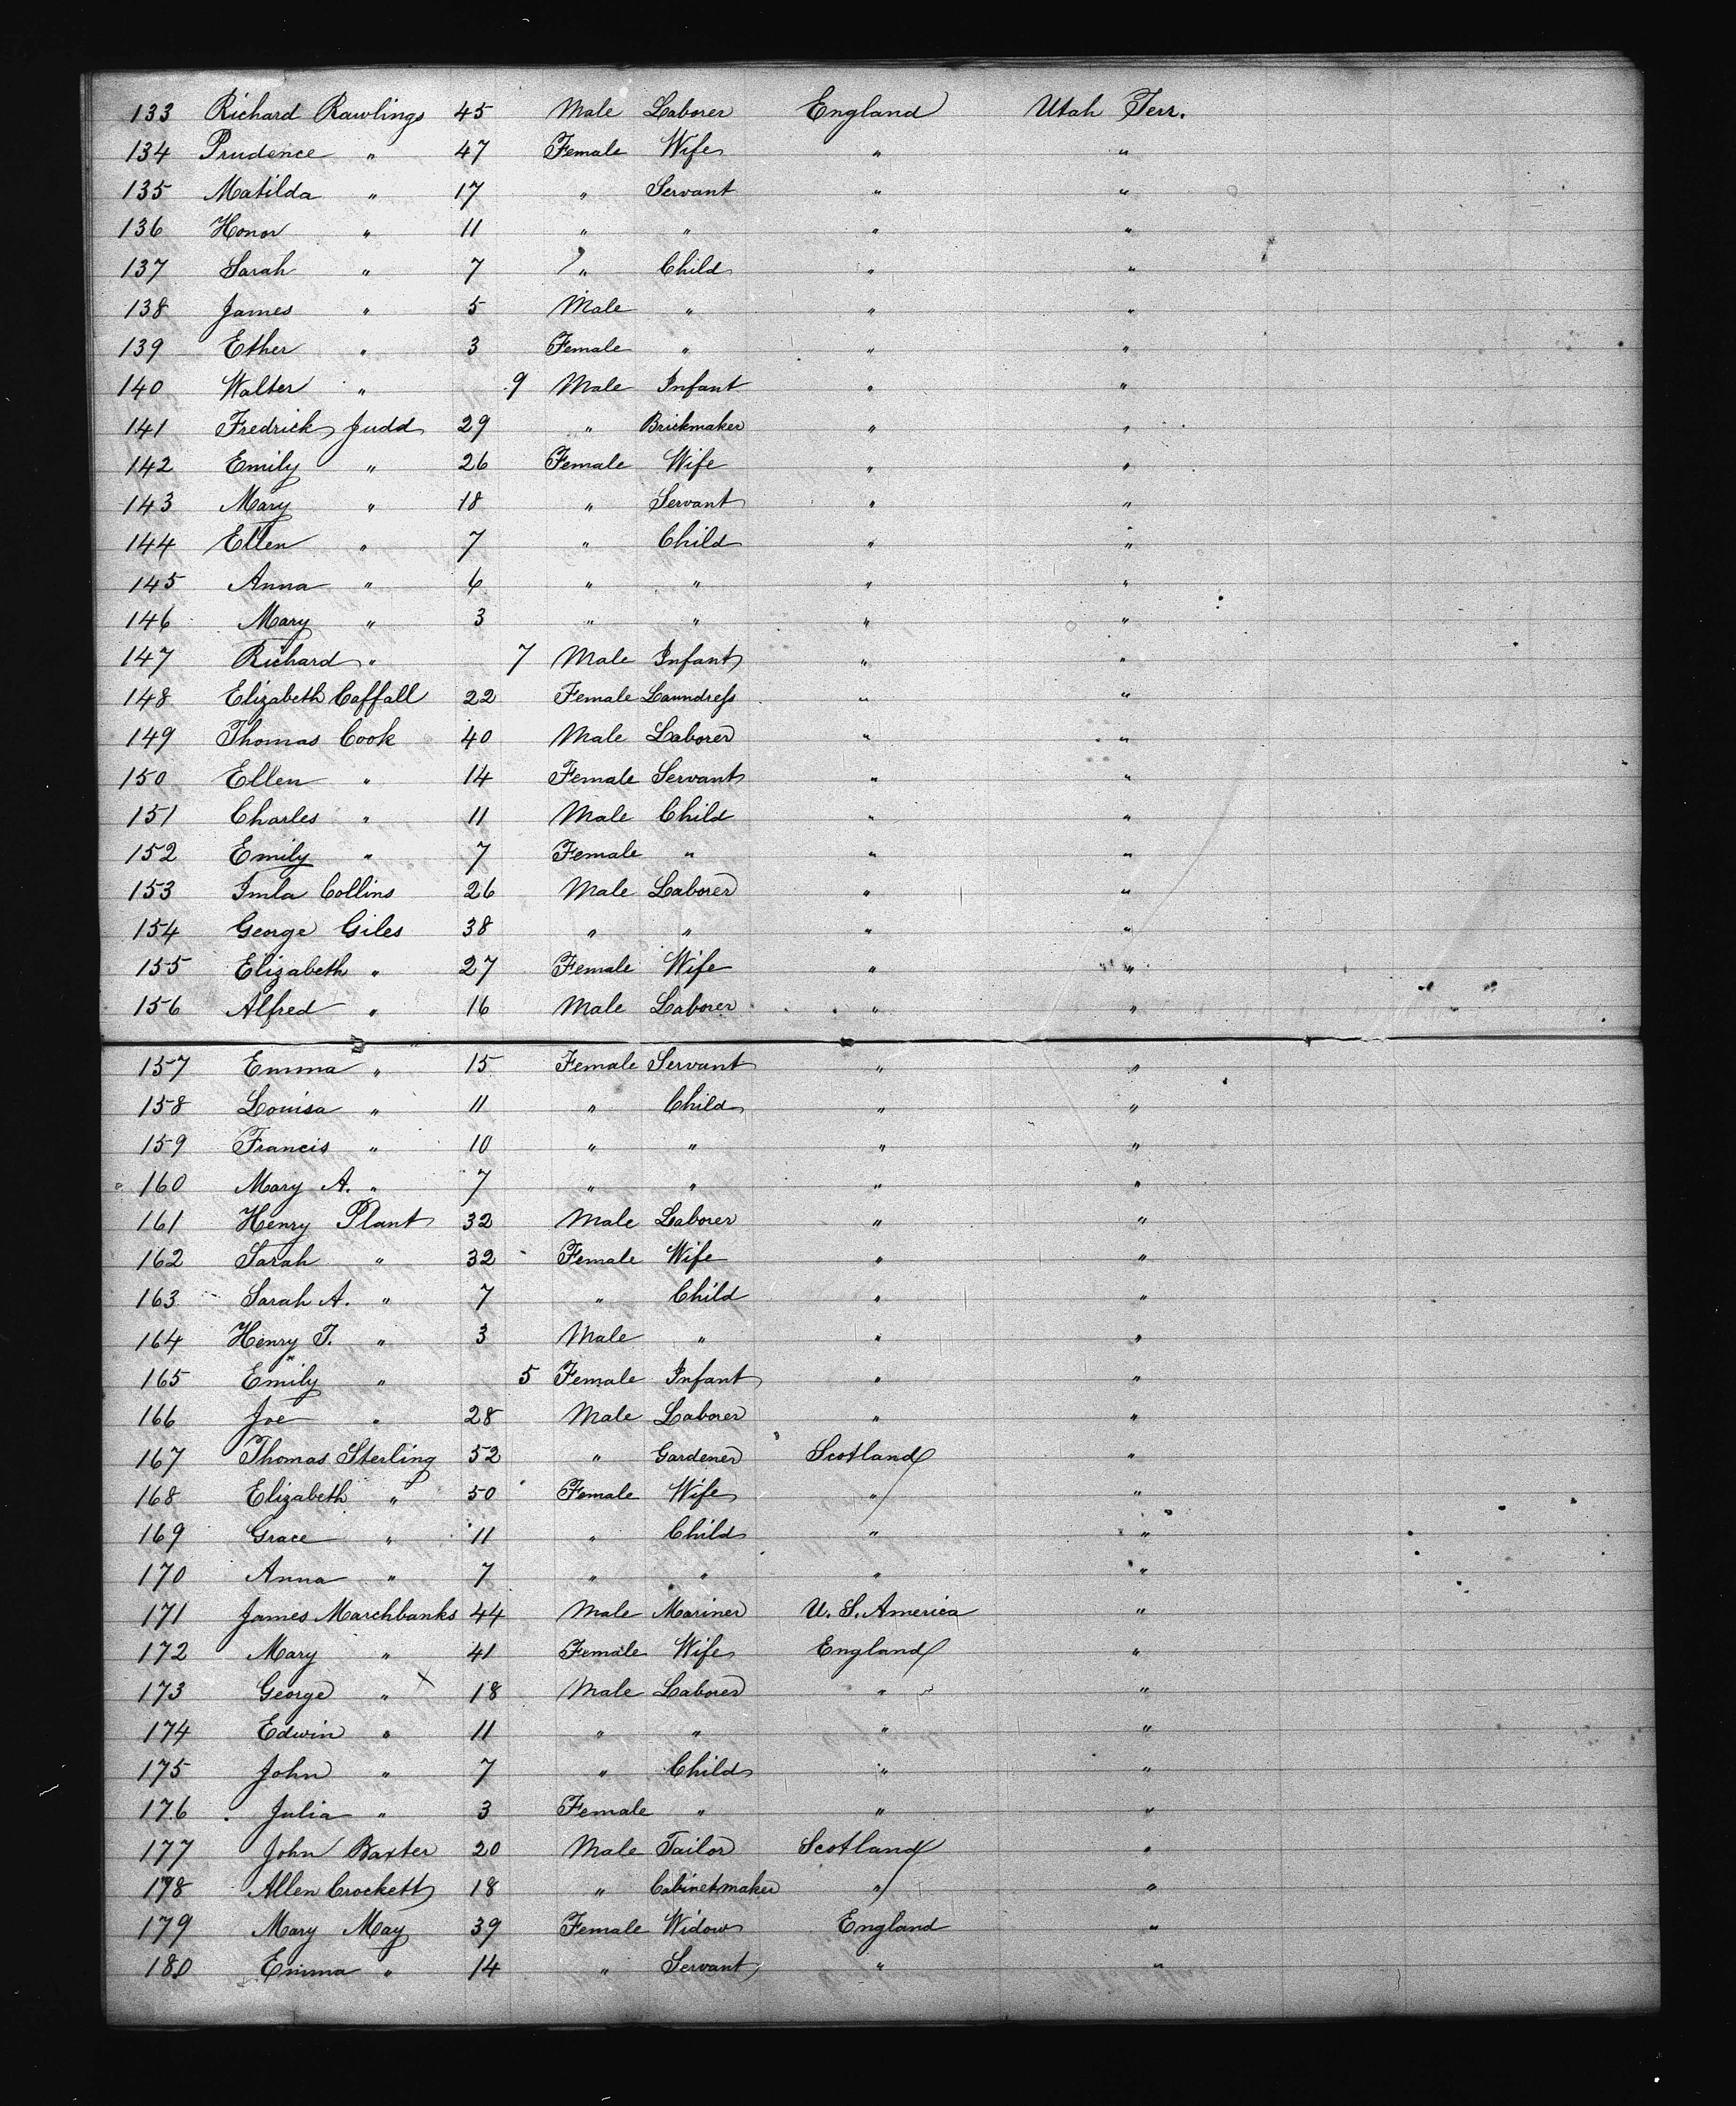 133 Richard Rawlings 45 Male Laborer England Utah Terr.
134 Prudence " 47 Female Wife " "
135 Matilda " 17 " Servant " "
136 Honor " 11 " " " "
137 Sarah " 7 " Child " "
138 James " 5 Male " " "
139 Ether " 3 Female " " "
140 Walter " 9 Male Infant " "
141 Fredrick Judd 29 " Brickmaker " "
142 Emily " 26 Female Wife " "
143 Mary " 18 " Servant " "
144 Ellen " 7 " Child " "
145 Anna " 6 " " " "
146 Mary " 3 " " " "
147 Richard " 7 Male Infant " "
148 Elizabeth Caffall 22 Female Laundress " "
149 Thomas Cook 40 Male Laborer " "
150 Ellen " 14 Female Servant " "
151 Charles " 11 Male Child " "
152 Emily " 7 Female " " "
153 Imla Collins 26 Male Laborer " "
154 George Giles 38 " " " "
155 Elizabeth " 27 Female Wife " "
156 Alfred " 16 Male Laborer " "
157 Emma " 15 Female Servant " "
158 Louisa " 11 " Child " "
159 Francis " 10 " " " "
160 Mary A. " 7 " " " "
161 Henry Plant 32 Male Laborer " "
162 Sarah " 32 Female Wife " "
163 Sarah A. " 7 " Child " "
164 Henry J. " 3 Male " " "
165 Emily " 5 Female Infant " "
166 Joe " 28 Male Laborer " "
167 Thomas Sterling 52 " Gardener Scotland "
168 Elizabeth " 50 Female Wife " "
169 Grace " 11 " Child " "
170 Anna " 7 " " " "
171 James Marchbanks 44 Male Mariner U. S. America "
172 Mary " 41 Female Wife England "
173 George " 18 Male Laborer " "
174 Edwin " 11 " " " "
175 John " 7 " Child " "
176 Julia " 3 Female " " "
177 John Baxter 20 Male Tailor Scotland "
178 Allen Crockett 18 " Cabinetmaker " "
179 Mary May 39 Female Widow England "
180 Emma " 14 " Servant " "